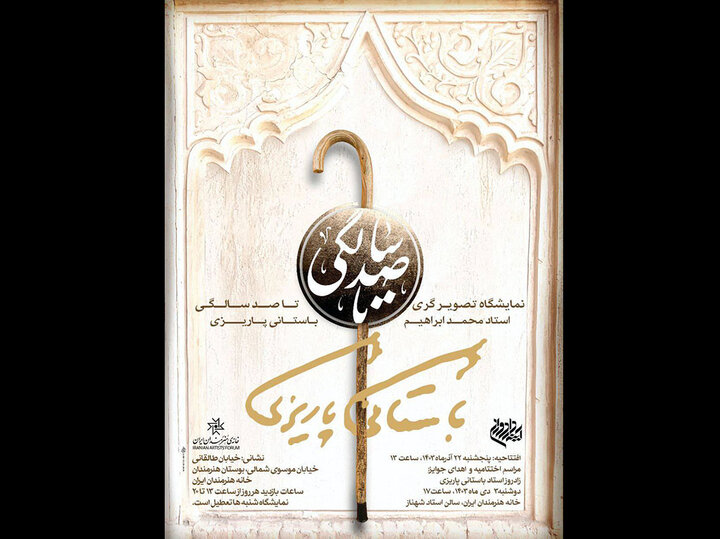 تا صد سالگی
نمایشگاه تصویرگری تا صد سالگی
استاد محمد ابراهیم باستانی پاریزی
باستانی پاریزی
خانه‌ی هنرمندان ایران
IRANIAN ARTISTS FORUM
افتتاحیه: پنجشنبه ۲۲ آذرماه ۱۴۰۳، ساعت ۱۳
مراسم اختتامیه و اهدای جوایز:
زادروز استاد باستانی پاریزی
دوشنبه ۳ دی ماه ۱۴۰۳، ساعت ۱۷
خانه هنرمندان ایران، سالن استاد شهناز
نشانی: خیابان طالقانی
خیابان موسوی شمالی، بوستان هنرمندان
خانه هنرمندان ایران
ساعات بازدید هر روز از ساعت ۱۳ تا ۲۰
نمایشگاه شنبه ها تعطیل است.